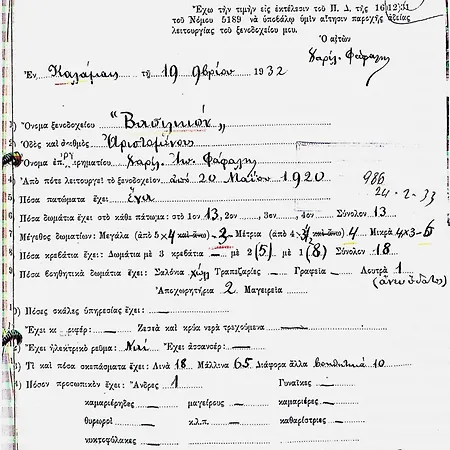 Ἔχω τὴν τιμὴν εἰς ἐκτέλεσιν τοῦ Π. Δ. τῆς 16)12)31
τοῦ Νόμου 5189 νὰ ὑποβάλω ὑμῖν αἴτησιν παροχῆς ἀδείας
λειτουργίας τοῦ ξενοδοχείου μου.
Ὁ αἰτῶν
Χαρίλ. Φάφαλης
Ἐν Καλάμαις τῇ 19 9βρίου 1932
) Ὄνομα ξενοδοχείου "Βασιλικόν„
2) Ὁδὸς καὶ ἀριθμὸς Ἀριστομένους
Ὄνομα ἐπιχειρηματίου Χαρίλ. Ἰω. Φάφαλης
4) Ἀπὸ πότε λειτουργεῖ τὸ ξενοδοχεῖον ἀπὸ 20 Μαΐου 1920
986
24-2-33
5 Πόσα πατώματα ἔχει: ἕνα
6 Πόσα δωμάτια ἔχει στὸ κάθε πάτωμα: στὸ 1ον 13, 2ον , 3ον , 4ον Σύνολον 13
7 Μέγεθος δωματίων: Μεγάλα (ἀπὸ 5×4 καὶ ἄνω) 3 Μέτρια (ἀπὸ 4×4 καὶ ἄνω) 4 Μικρὰ 4×3-6
8 Πόσα κρεβάτια ἔχει: Δωμάτια μὲ 3 κρεβάτια — μὲ 2 (5) μὲ 1 (8) Σύνολον 18
9 Πόσα βοηθητικὰ δωμάτια ἔχει: Σαλόνια Τραπεζαρίες — Γραφεῖα — Λουτρὰ 1
(ἄνευ ὕδατος)
Ἀποχωρητήρια 2 Μαγειρεῖα
) Πόσες σκάλες ὑπηρεσίας ἔχει: —
Ἔχει καλοριφέρ: — Ζεστὰ καὶ κρύα νερὰ τρεχούμενα —
2) Ἔχει ἠλεκτρικὸ ρεῦμα: Ναί Ἔχει ἀσσανσέρ: —
3) Τί καὶ πόσα σκεπάσματα ἔχει: Λινὰ 18 Μάλλινα 65 Διάφορα ἄλλα βοηθητικά 10
4) Πόσον προσωπικὸν ἔχει: Ἄνδρες 1 Γυναῖκες —
καμαριέρηδες — μαγείρους — καμαριέρες —
θυρωροί — κ.λ.π. — καθαρίστριες —
νυκτοφύλακες —